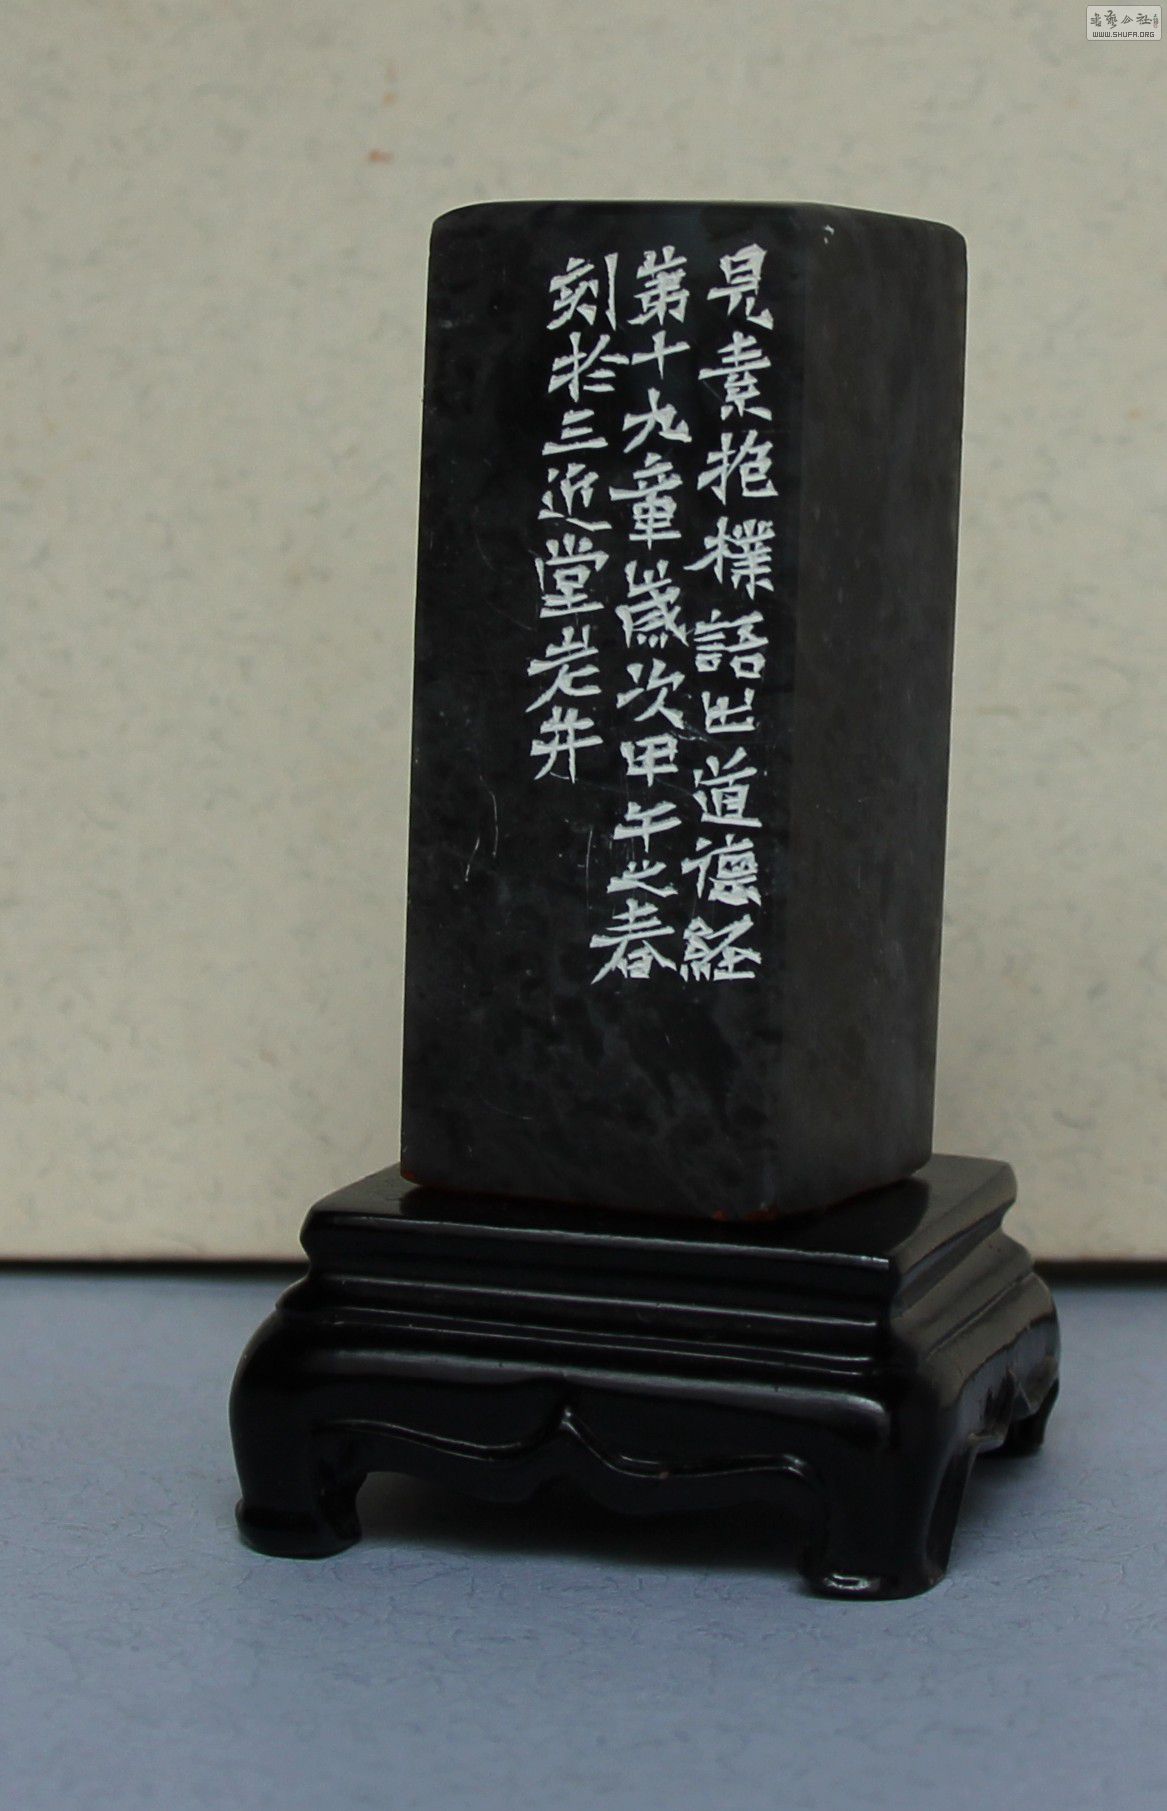 見素抱樸語出道德経
第十九章歲次甲午之春
刻於三近堂老井
書藝公社
WWW.SHUFA.ORG